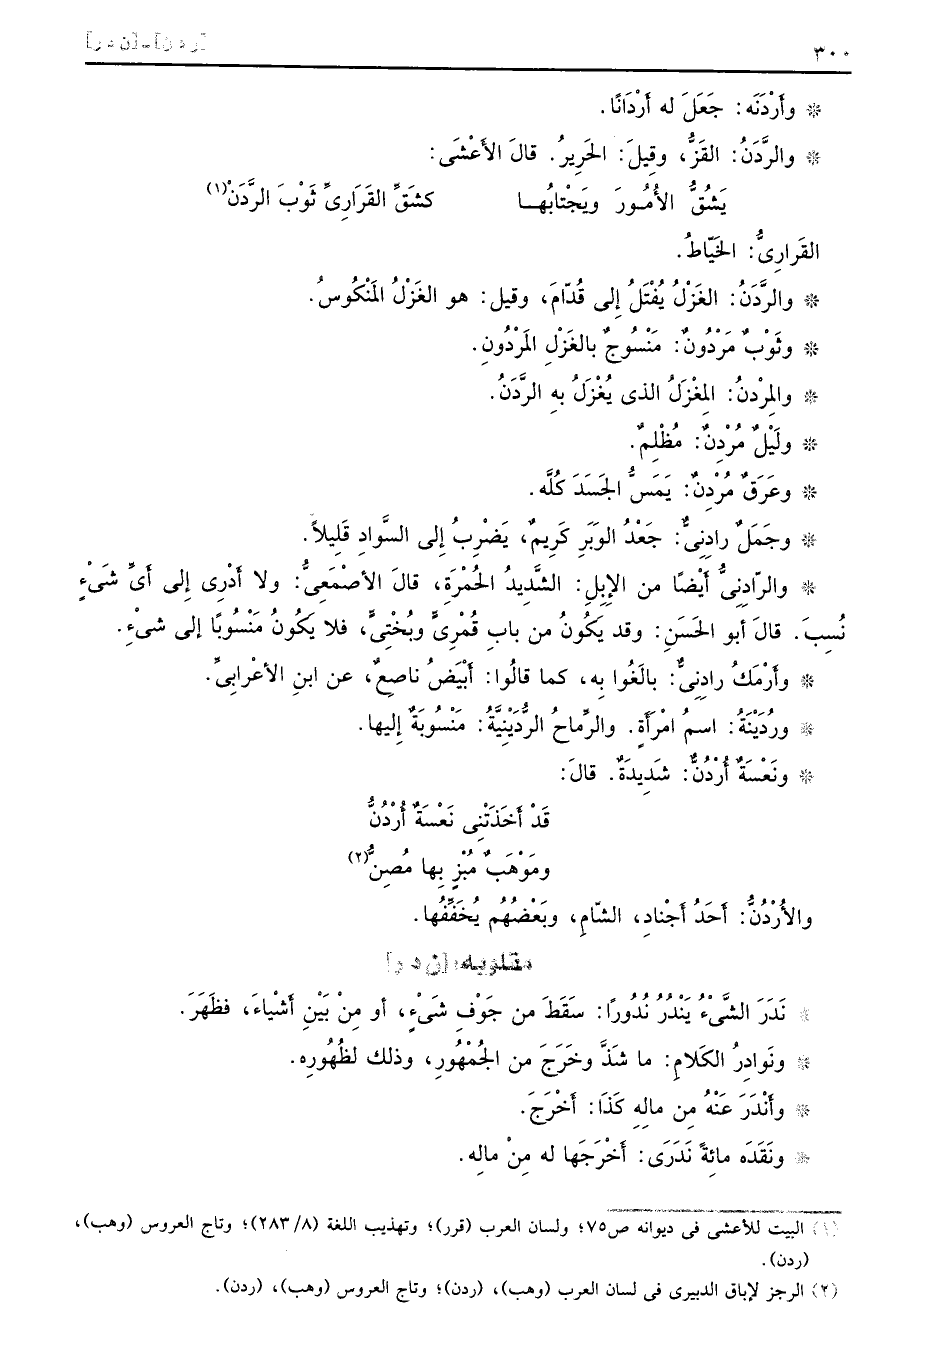 ٣٠٠
[ر د ن]ـ[ن د ر]
* وأَرْدَنَه: جَعَلَ له أَرْدَانًا.
* والرَّدَنُ: القَزُّ، وقِيلَ: الحَرِيرُ. قالَ الأَعْشَى:
يَشُقُّ الأُمُـورَ ويَجْتابُهـا كشَقِّ القَرَارِىِّ ثَوْبَ الرَّدَنْ(١)
القَرارِىُّ: الخَيّاطُ.
* والرَّدَنُ: الغَزْلُ يُفْتَلُ إلى قُدّامَ، وقيل: هو الغَزْلُ المَنْكُوسُ.
* وثَوْبٌ مَرْدُونٌ: مَنْسُوجٌ بالغَزْلِ المَرْدُونِ.
* والمِرْدنُ: المِغْزَلُ الذى يُغْزَلُ بهِ الرَّدَنُ.
* ولَيْلٌ مُرْدِنٌ: مُظْلِمٌ.
* وعَرَقٌ مُرْدِنٌ: يَمَسُّ الجَسَدَ كُلَّه.
* وجَمَلٌ رادِنِىٌّ: جَعْدُ الوَبَرِ كَرِيمٌ، يَضْرِبُ إلى السَّوادِ قَلِيلاً.
* والرّادِنِىُّ أَيْضًا من الإبِلِ: الشَّدِيدُ الحُمْرَةِ، قالَ الأَصْمَعِىُّ: ولا أَدْرِى إلى أَىِّ شَىْءٍ
نُسِبَ. قالَ أبو الحَسَنِ: وقد يَكُونُ من بابِ قُمْرِىٍّ وبُخْتِىٍّ، فلا يَكُونُ مَنْسُوبًا إلى شىْءٍ.
* وأَرْمَكُ رادِنِىٌّ: بالَغُوا بهِ، كما قالُوا: أَبْيَضُ ناصِعٌ، عن ابنِ الأعْرابِىِّ.
* ورُدَيْنَةُ: اسمُ امْرَأَةٍ. والرِّماحُ الرُّدَيْنِيَّةُ: مَنْسُوبَةٌ إليها.
* ونَعْسَةٌ أُرْدُنٌّ: شَدِيدَةٌ. قالَ:
قَدْ أَخَذَتْنِى نَعْسَةٌ أُرْدُنُّ
ومَوْهَبٌ مُبْزٍ بِها مُصِنُّ(٢)
والأُرْدُنُّ: أَحَدُ أَجْنادِ، الشّامِ، وبَعْضُهُم يُخَفِّفُها.
مقلوبه: [ن د ر]
* نَدَرَ الشَّىْءُ يَنْدُرُ نُدُورًا: سَقَطَ من جَوْفِ شَىْءٍ، أو مِنْ بَيْنِ أَشْياءَ، فظَهَرَ.
* ونَوادِرُ الكَلامِ: ما شَذَّ وخَرَجَ من الجُمْهُورِ، وذلك لظُهُورِه.
* وأَنْدَرَ عَنْهُ مِن مالِهِ كَذَا: أَخْرَجَ.
* ونَقَدَه مائةً نَدَرَى: أَخْرَجَها له مِنْ مالِه.
(١) البيت للأعشى فى ديوانه ص٧٥؛ ولسان العرب (قرر)؛ وتهذيب اللغة (٢٨٣/٨)؛ وتاج العروس (وهب)،
(ردن).
(٢) الرجز لإباق الدبيرى فى لسان العرب (وهب)، (ردن)؛ وتاج العروس (وهب)، (ردن).